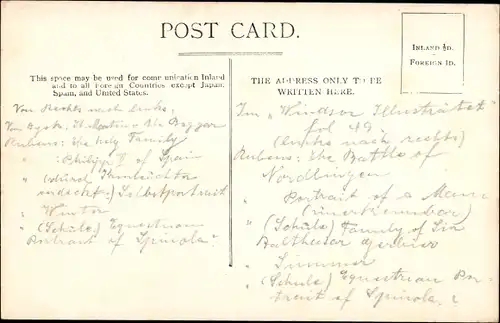 POST CARD.
INLAND ½D.
FOREIGN 1D.
This space may be used for communication Inland
and to all Foreign Countries except Japan,
Spain, and United States.
THE ADDRESS ONLY TO BE
WRITTEN HERE.
Von Rechts nach links,
Van Dyck, St Martin & the Beggar
Rubens: the holy Family
" Philipp II of Spain
" Selbstportrait
" Winter
" (Schule) Equestrian
Portrait of Spinola?
Im "Windsor Illustrated"
fol 49.
(links nach rechts)
Rubens: the Battle of
Nordlingen
" Portrait of a Man
" (Schule) Family of Sir
Balthasar Gerbier
" Summer
" (Schule) Equestrian Por-
trait of Spinola?